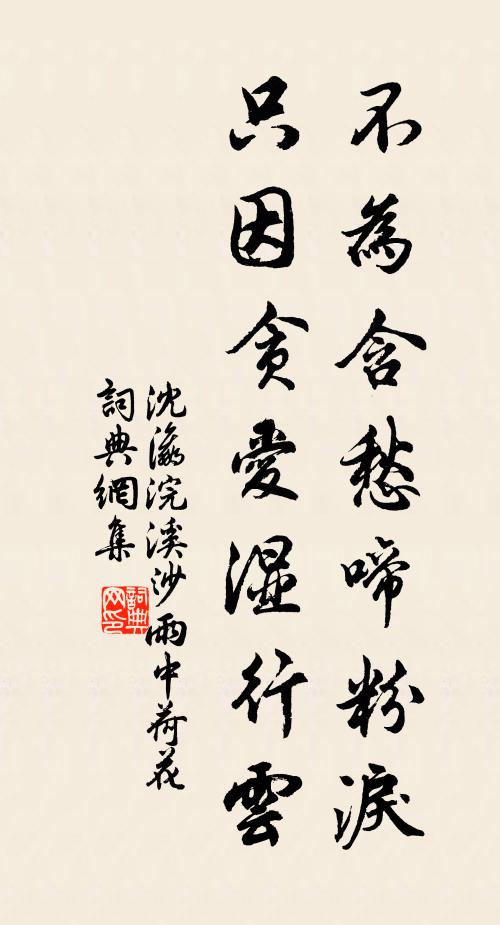 不為含愁啼粉淚
只因貪愛濕行雲
沈瀛浣溪沙雨中荷花
詞典網集
詞典
网印